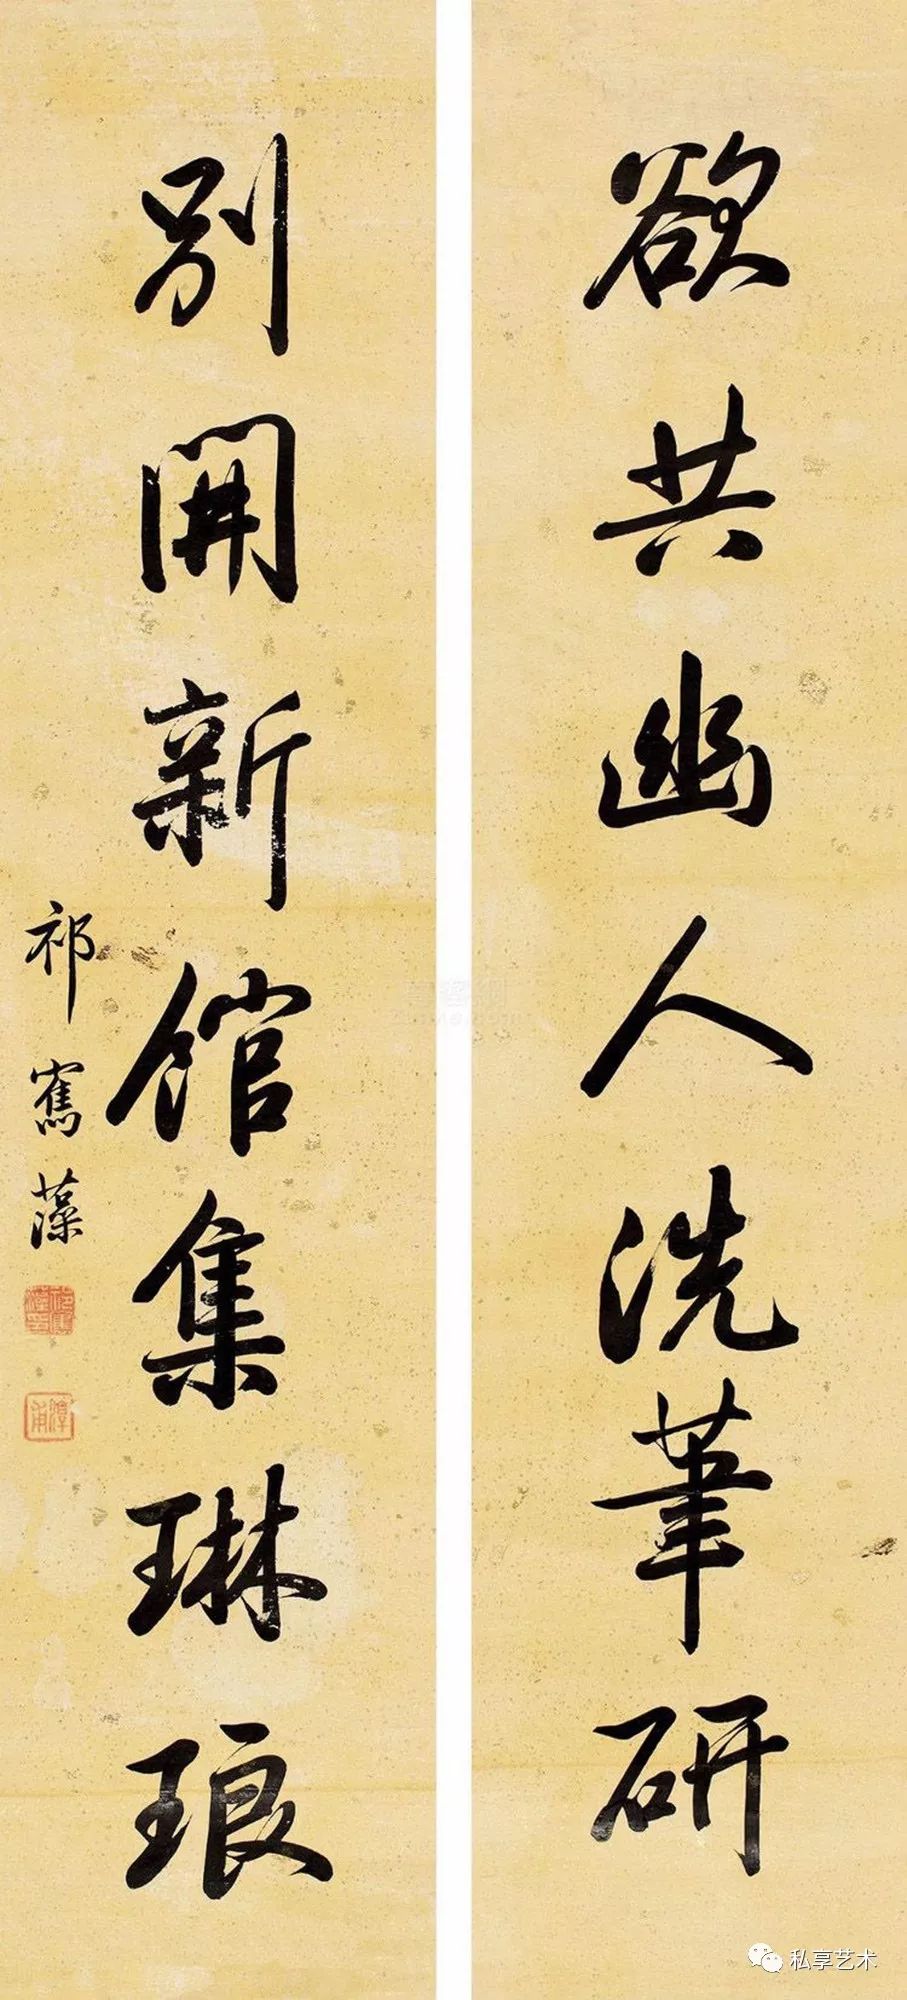 欲共幽人洗筆研
別開新館集琳琅
祁寯藻
私享艺术